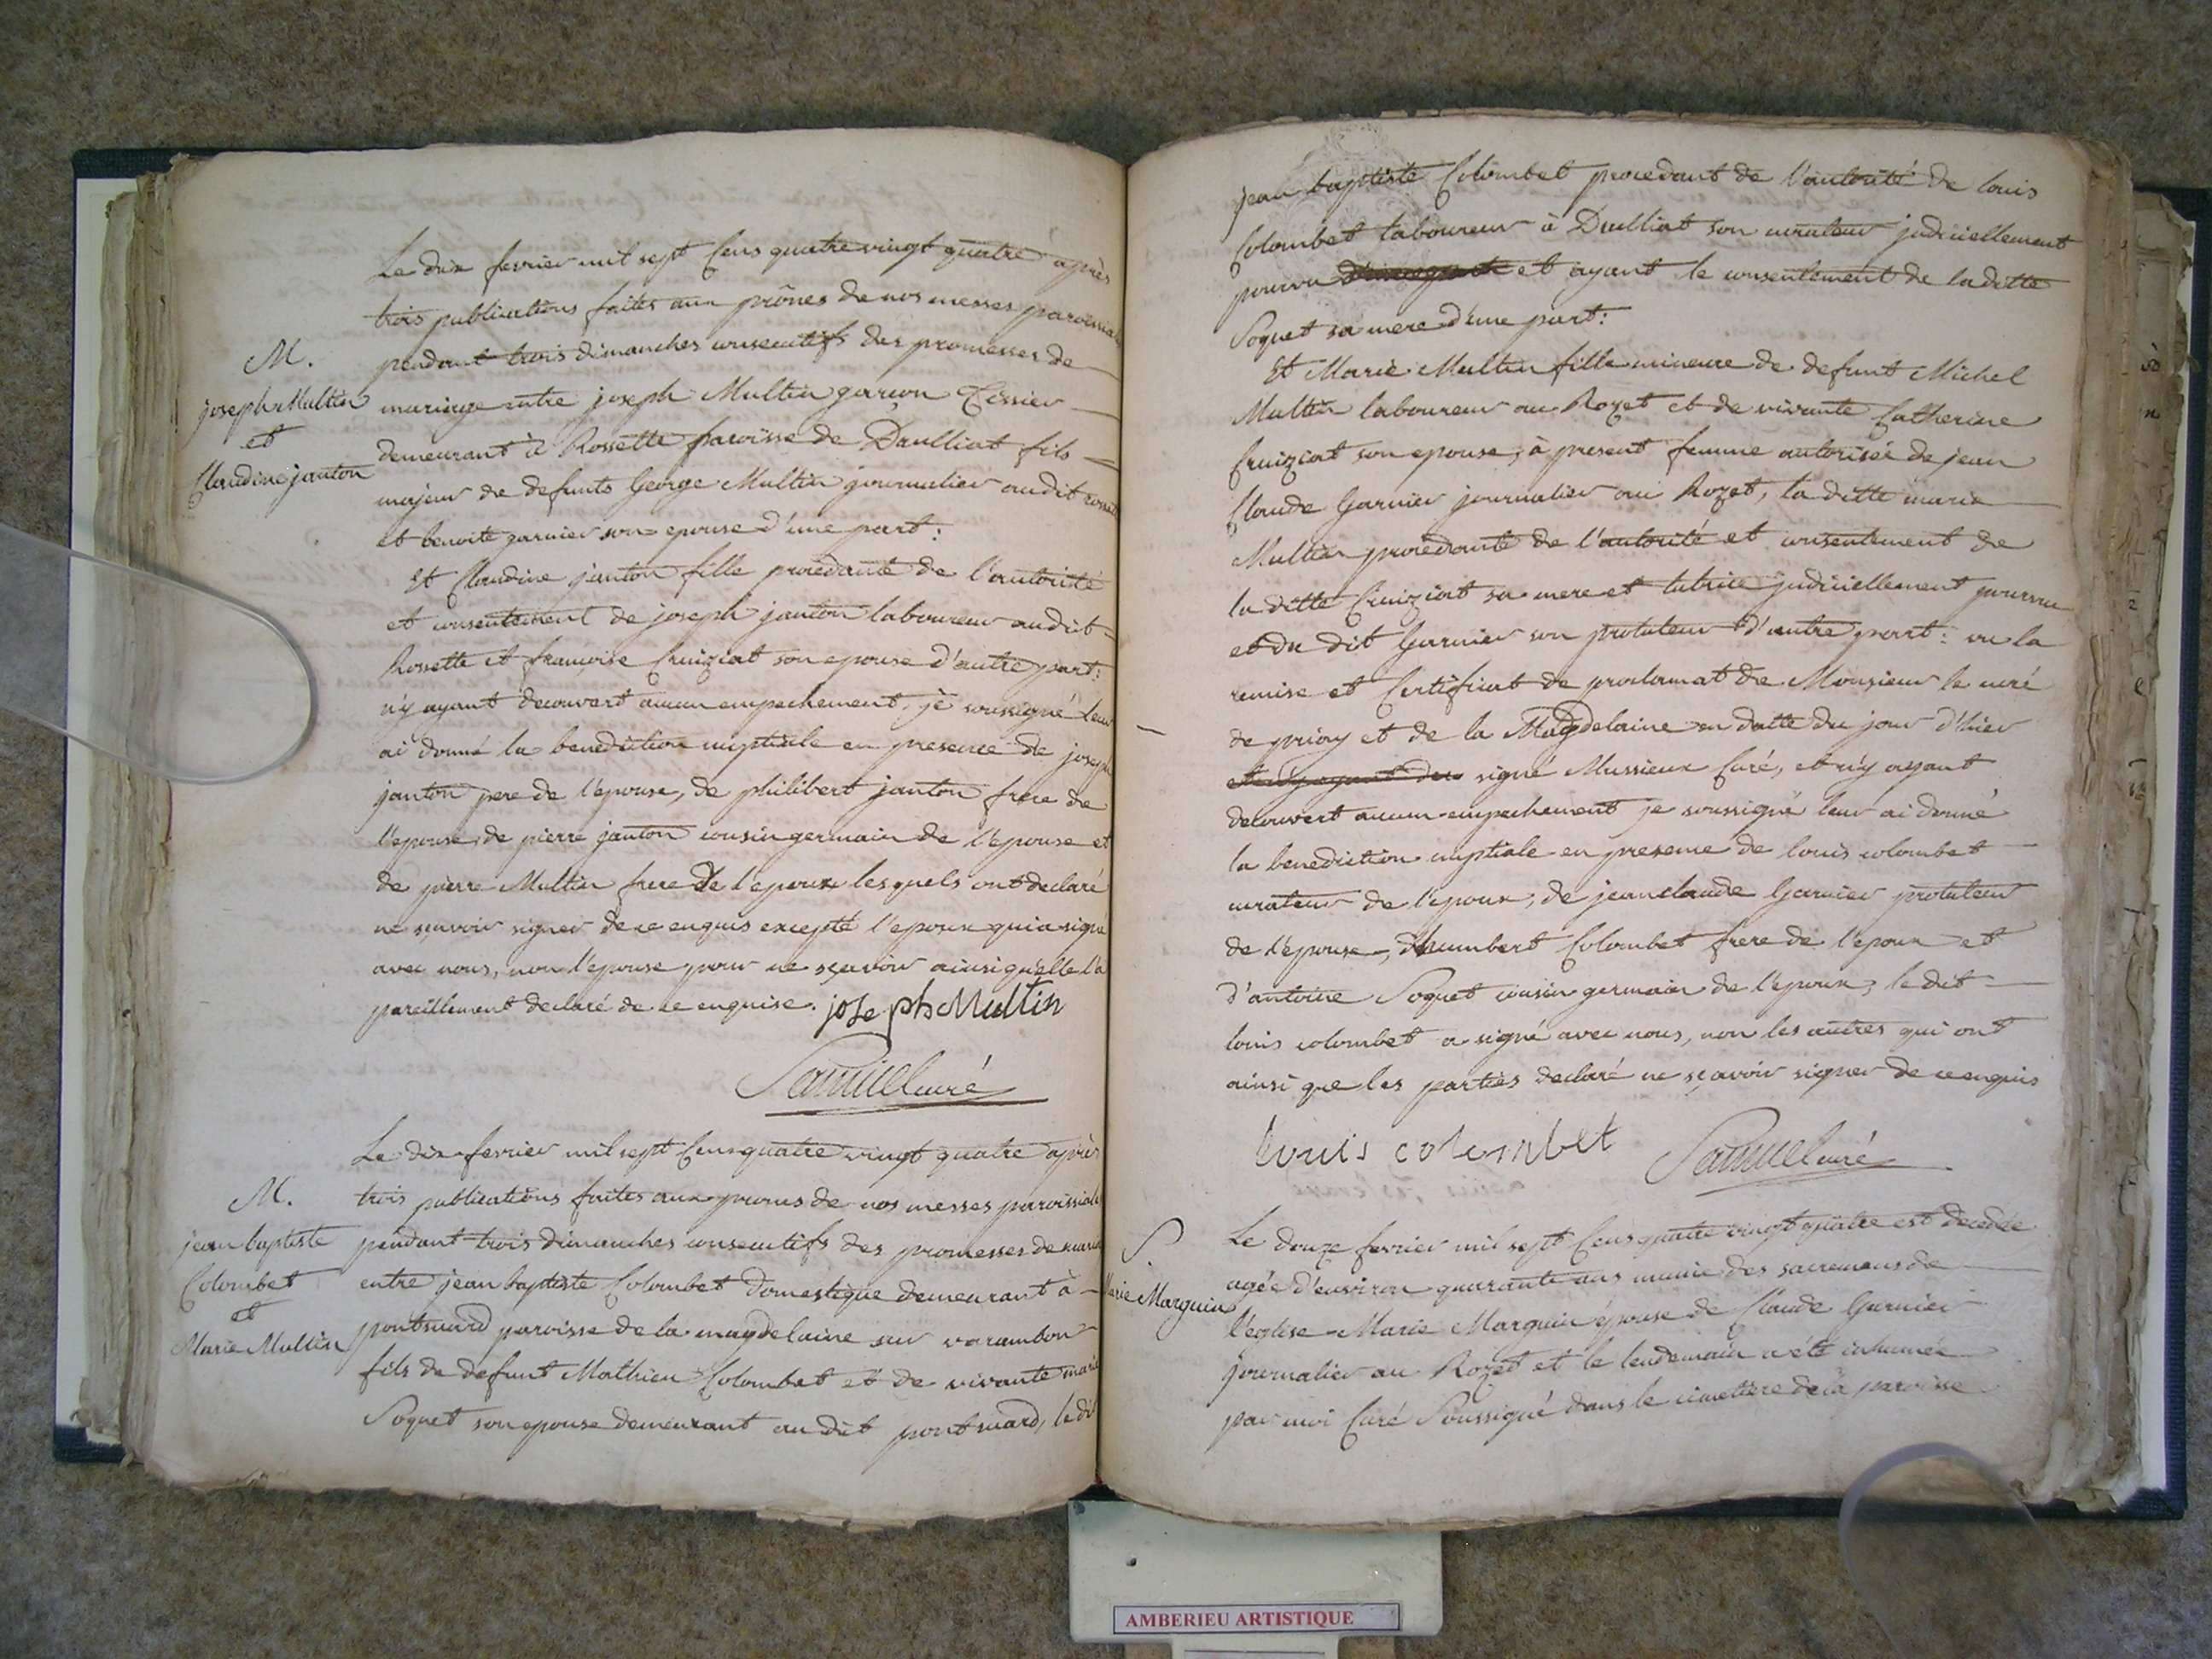 Le dix fevrier mil sept Cens quatre vingt quatre après
trois publications faites aux prônes de nos messes paroissiales
M.
pendant trois dimanches consecutifs des promesses de
joseph Multin
mariage entre joseph Multin garçon Tissier
et
demeurant à Rossette paroisse de Daulliat fils
Claudine janton
majeur de defunts George Multin journalier audit
et benoite garnier son epouse d'une part :
Et Claudine janton fille procedante de l'autorité
et consentement de joseph janton laboureur audit
Rossette et françoise Cruiziat son epouse d'autre part :
n'y ayant decouvert aucun empechement, je soussigné leur
ai donné la benediction nuptiale en presence de joseph
janton pere de l'epouse, de philibert janton frere de
l'epouse, de pierre janton cousin germain de l'epouse et
de pierre Multin frere de l'epoux lesquels ont declaré
ne sçavoir signer de ce enquis excepté l'epoux qui a signé
avec nous, non l'epouse pour ne sçavoir ainsi qu'elle l'a
pareillement declaré de ce enquise. joseph Multin
Samuel curé
Le dix fevrier mil sept Cens quatre vingt quatre après
M.
trois publications faites aux prones de nos messes paroissiales
jean baptiste
pendant trois dimanches consecutifs des promesses de
Colombet
entre jean baptiste Colombet domestique demeurant à
et
pontsuard paroisse de la magdelaine sur varambon
Marie Multin
fils de defunt Mathieu Colombet et de vivante marie
Soquet son epouse demeurant au dit pontsuard, le dit
jean baptiste Colombet procedant de l'autorité de louis
Colombet laboureur à Daulliat son curateur judiciellement
pourvu et ayant le consentement de la ditte
Soquet sa mere d'une part :
Et Marie Multin fille mineure de defunt Michel
Multin laboureur au Rozet et de vivante Catherine
Cruiziat son epouse, à present femme autorisée de jean
Claude Garnier journalier au Rozet, la ditte marie
Multin procedante de l'autorité et consentement de
la ditte Cruiziat sa mere et tutrice judiciellement pourvue
et du dit Garnier son protuteur d'autre part : vu la
remise et Certificat de proclamat de Monsieur le curé
de priay et de la Magdelaine en datte du jour d'hier
signé Mussieux Curé, et n'y ayant
decouvert aucun empechement je soussigné leur ai donné
la benediction nuptiale en presence de louis colombet
curateur de l'epoux, de jean claude Garnier protuteur
de l'epouse, d'humbert Colombet frere de l'epoux et
d'antoine Soquet cousin germain de l'epoux, le dit
louis colombet a signé avec nous, non les autres qui ont
ainsi que les parties declaré ne sçavoir signer de ce enquis
louis colombet Samuel curé
S.
Le douze fevrier mil sept Cens quatre vingt quatre est decedée
Marie Marguin
agée d'environ quarante ans munie des sacremens de
l'eglise Marie Marguin epouse de Claude Garnier
journalier au Rozet et le lendemain a été inhumée
par moi Curé Soussigné dans le cimetiere de la paroisse
AMBERIEU ARTISTIQUE